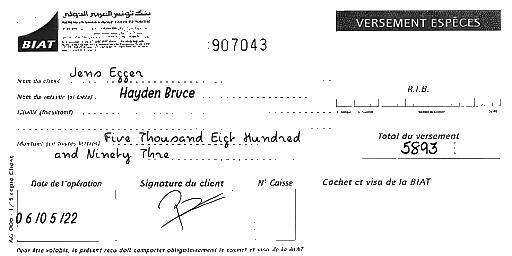 بنك تونس العربي الدولي
BIAT
VERSEMENT ESPÈCES
907043
Nom du client Jens Egger
R.I.B.
Nom du verseur (si tiers) Hayden Bruce
Libellé (facultatif)
Montant (en toutes lettres) Five Thousand Eigt Hundred
and Ninety Thre
Total du versement
5893
Date de l'opération
Signature du client
N° Caisse
Cachet et visa de la BIAT
06/05/22
Pour être valable, le présent reçu doit comporter obligatoirement le cachet et visa de la BIAT